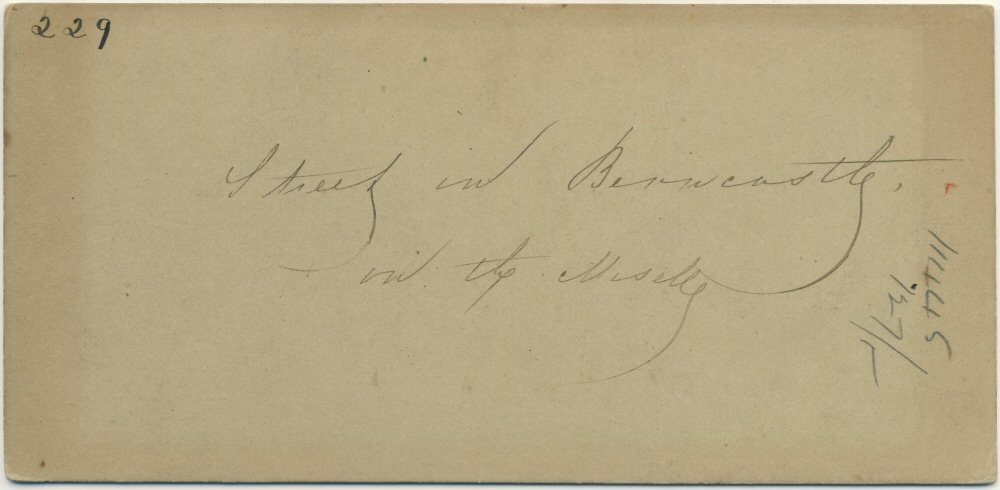 229
Street in Berncastle,
on the Moselle